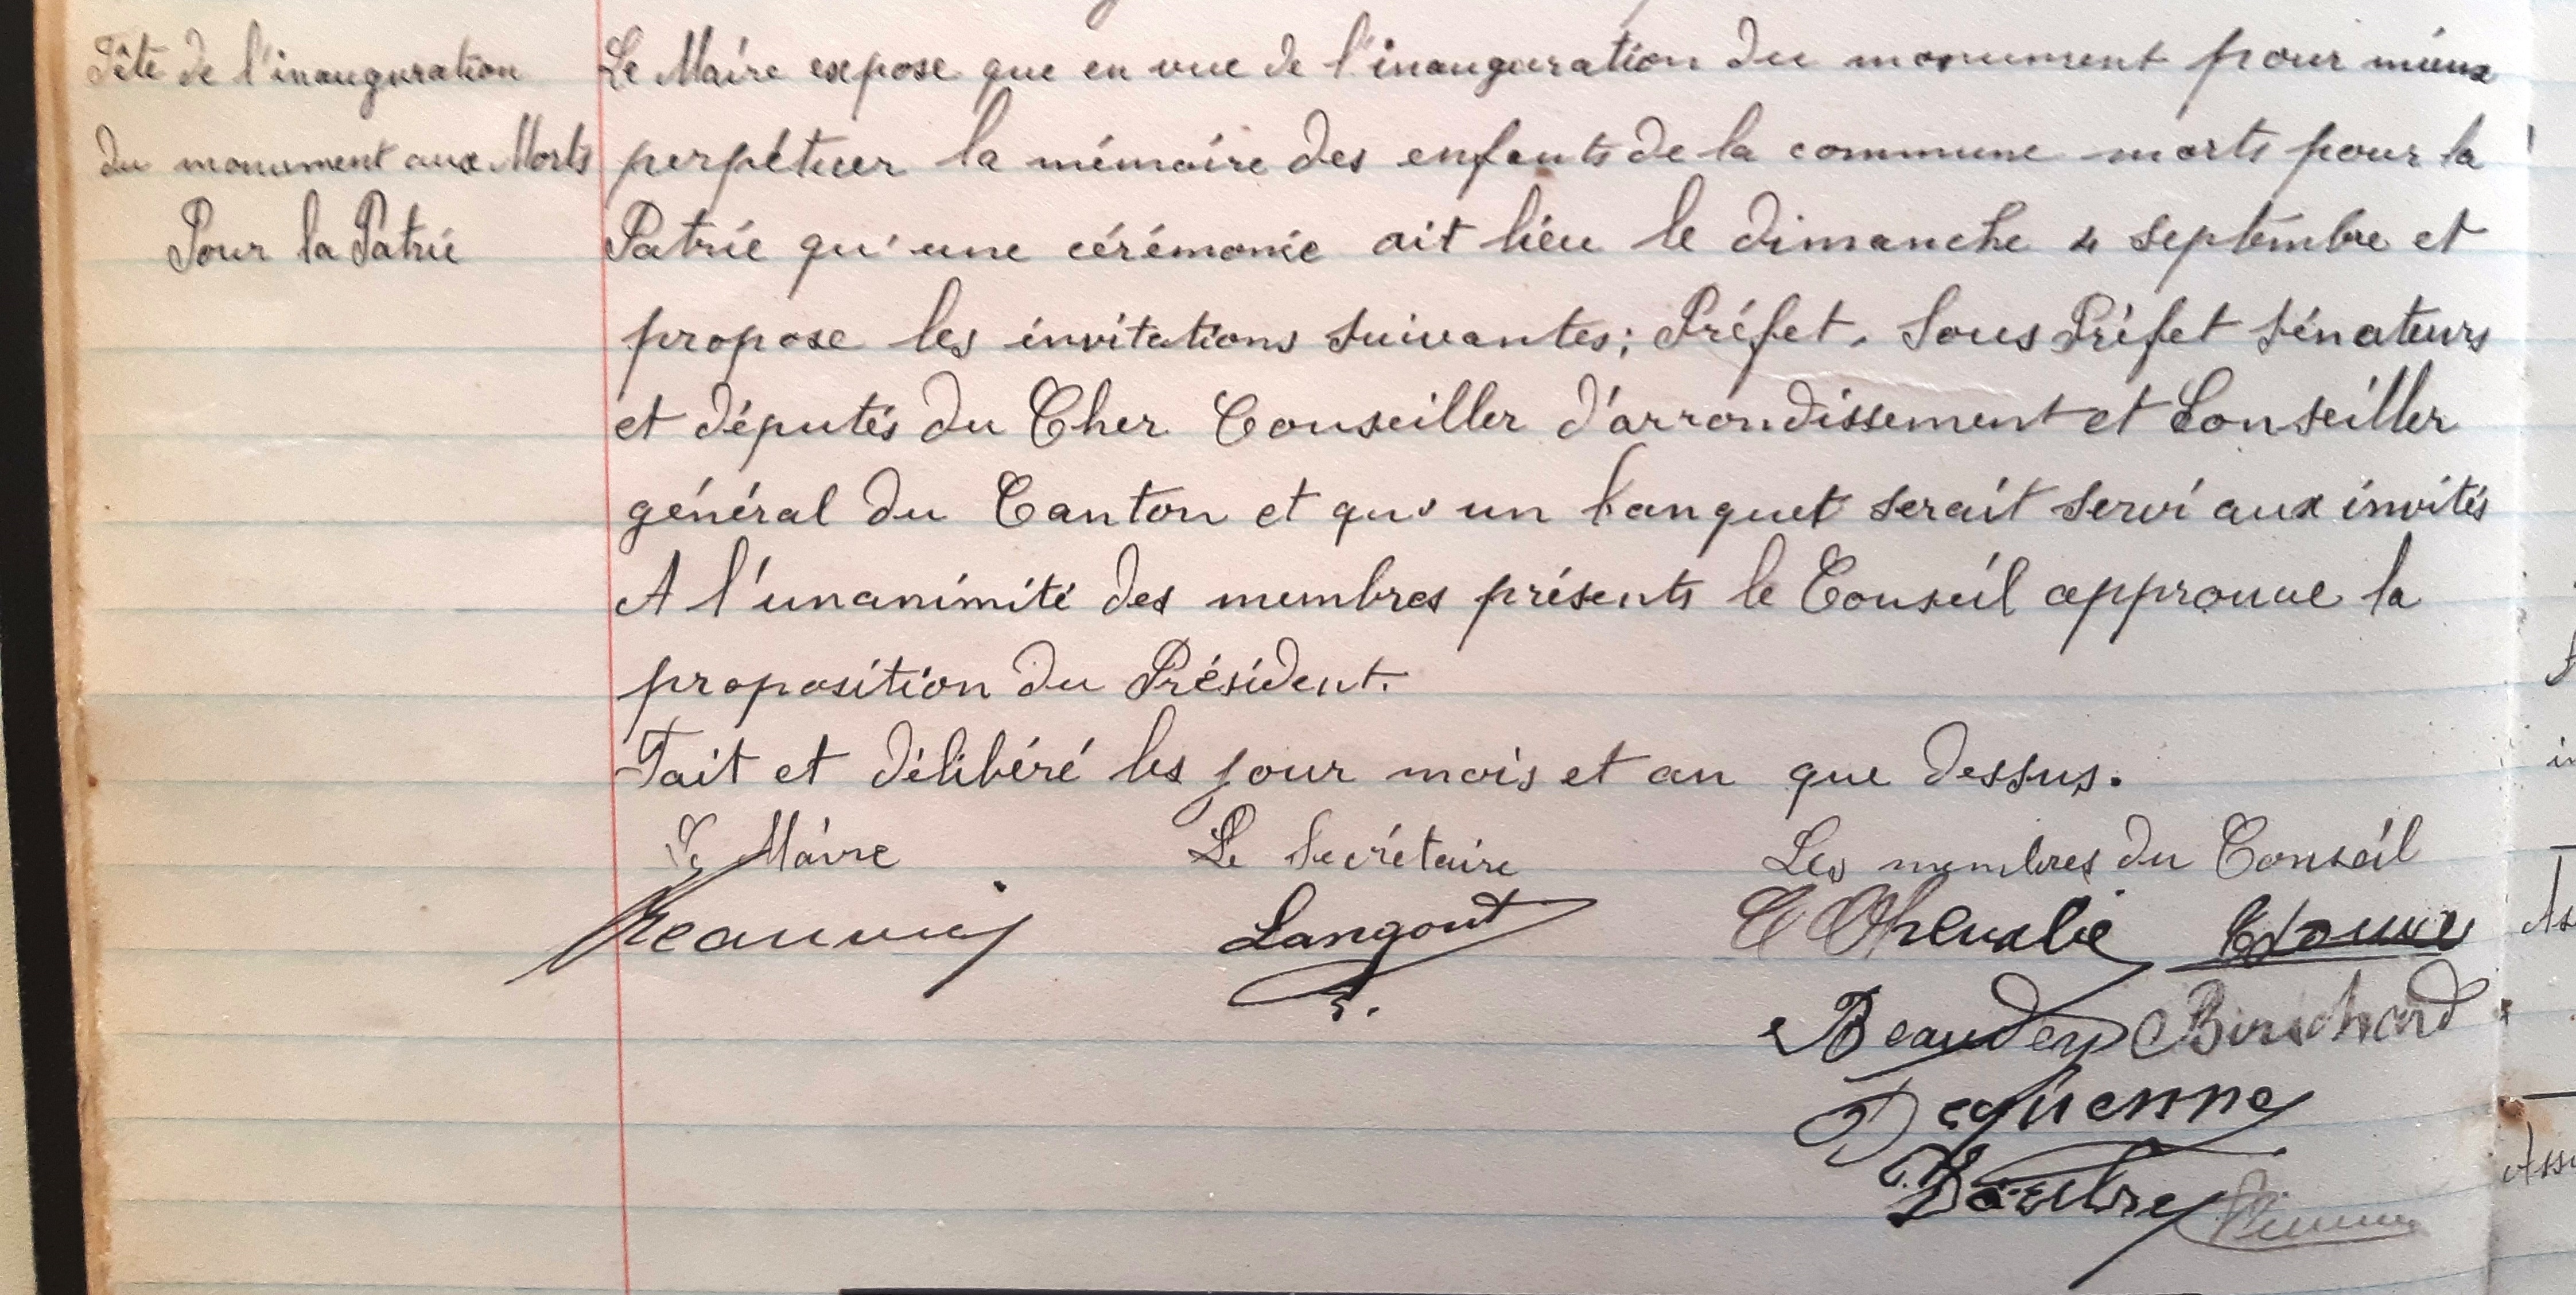 Fête de l'inauguration
du monument aux Morts
Pour la Patrie
Le Maire expose que en vue de l'inauguration du monument pour mieux
perpétuer la mémoire des enfants de la commune morts pour la
Patrie qu'une cérémonie ait lieu le dimanche 4 septembre et
propose les invitations suivantes; Préfet, Sous Préfet Sénateurs
et députés du Cher Conseiller d'arrondissement et Conseiller
général du Canton et qu'un banquet serait servi aux invités
A l'unanimité des membres présents le Conseil approuve la
proposition du Président.
Fait et délibéré les jour mois et an que dessus.
Le Maire Le Secrétaire Les membres du Conseil
Langout
Beaudey
Duquenne